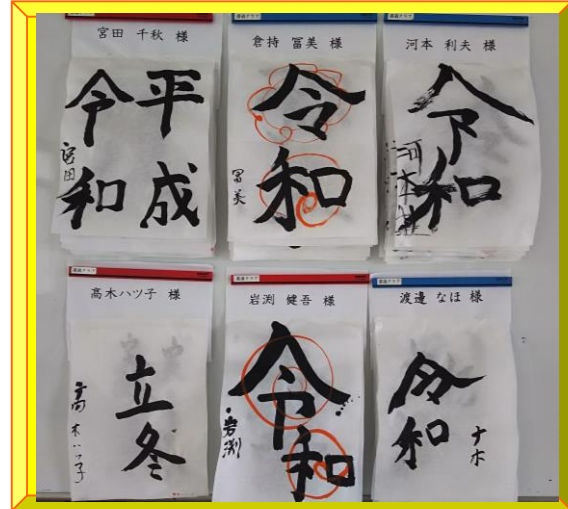 宮田 千秋 様
平成
令和
宮田
倉持 冨美 様
令和
冨美
河本 利夫 様
令和
河本
高木ハツ子 様
立冬
高木ハツ子
岩渕 健吾 様
令和
岩渕
渡邉 なほ 様
令和
ナホ